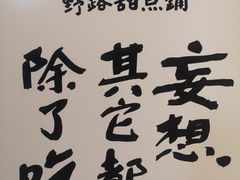 野路甜点铺
除了吃
其它都
妄想